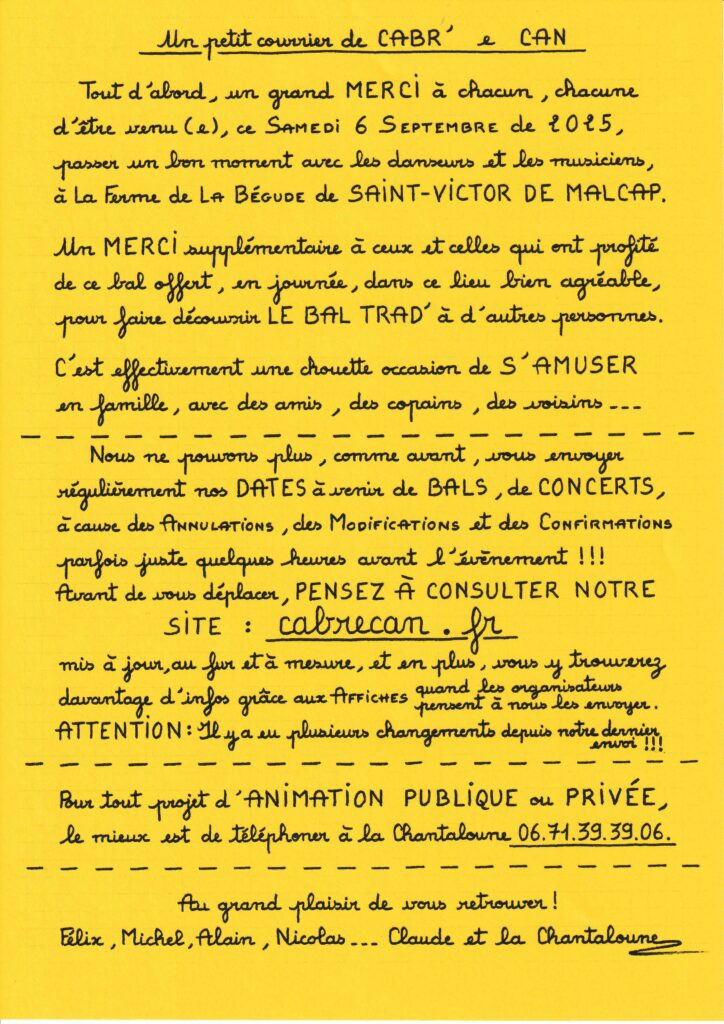 Un petit courrier de CABR' e CAN
Tout d'abord, un grand MERCI à chacun, chacune
d'être venu(e), ce SAMEDI 6 SEPTEMBRE de 2025,
passer un bon moment avec les danseurs et les musiciens,
à La Ferme de LA BÉGUDE de SAINT-VICTOR DE MALCAP.
Un MERCI supplémentaire à ceux et celles qui ont profité
de ce bal offert, en journée, dans ce lieu bien agréable,
pour faire découvrir LE BAL TRAD' à d'autres personnes.
C'est effectivement une chouette occasion de S'AMUSER
en famille, avec des amis, des copains, des voisins ---
Nous ne pouvons plus, comme avant, vous envoyer
régulièrement nos DATES à venir de BALS, de CONCERTS,
à cause des ANNULATIONS, des MODIFICATIONS et des CONFIRMATIONS
parfois juste quelques heures avant l'évènement !!!
Avant de vous déplacer, PENSEZ À CONSULTER NOTRE
SITE : cabrecan.fr
mis à jour, au fur et à mesure, et en plus, vous y trouverez
davantage d'infos grâce aux AFFICHES quand les organisateurs
pensent à nous les envoyer.
ATTENTION: Il y a eu plusieurs changements depuis notre dernier
envoi !!!
Pour tout projet d'ANIMATION PUBLIQUE ou PRIVÉE,
le mieux est de téléphoner à la Chantaloune 06.71.39.39.06.
Au grand plaisir de vous retrouver !
Félix, Michel, Alain, Nicolas --- Claude et la Chantaloune